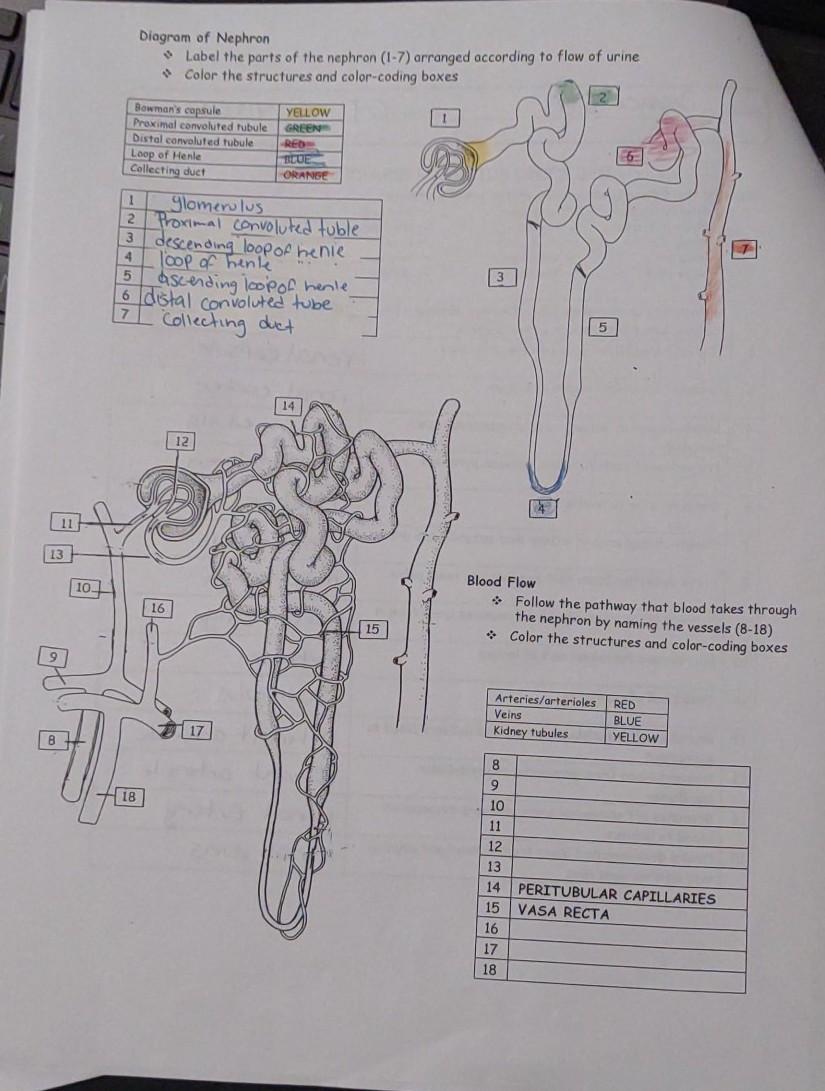 Diagram of Nephron
❖ Label the parts of the nephron (1-7) arranged according to flow of urine
❖ Color the structures and color-coding boxes
Bowman's capsule YELLOW
Proximal convoluted tubule GREEN
Distal convoluted tubule RED
Loop of Henle BLUE
Collecting duct ORANGE
1 glomerulus
2 Proximal convoluted tuble
3 descending loop of henle
4 loop of henle
5 ascending loop of henle
6 distal convoluted tube
7 Collecting duct
1
2
6
7
3
5
4
14
12
11
13
10
16
15
9
17
8
18
Blood Flow
❖ Follow the pathway that blood takes through
the nephron by naming the vessels (8-18)
❖ Color the structures and color-coding boxes
Arteries/arterioles RED
Veins BLUE
Kidney tubules YELLOW
8
9
10
11
12
13
14 PERITUBULAR CAPILLARIES
15 VASA RECTA
16
17
18